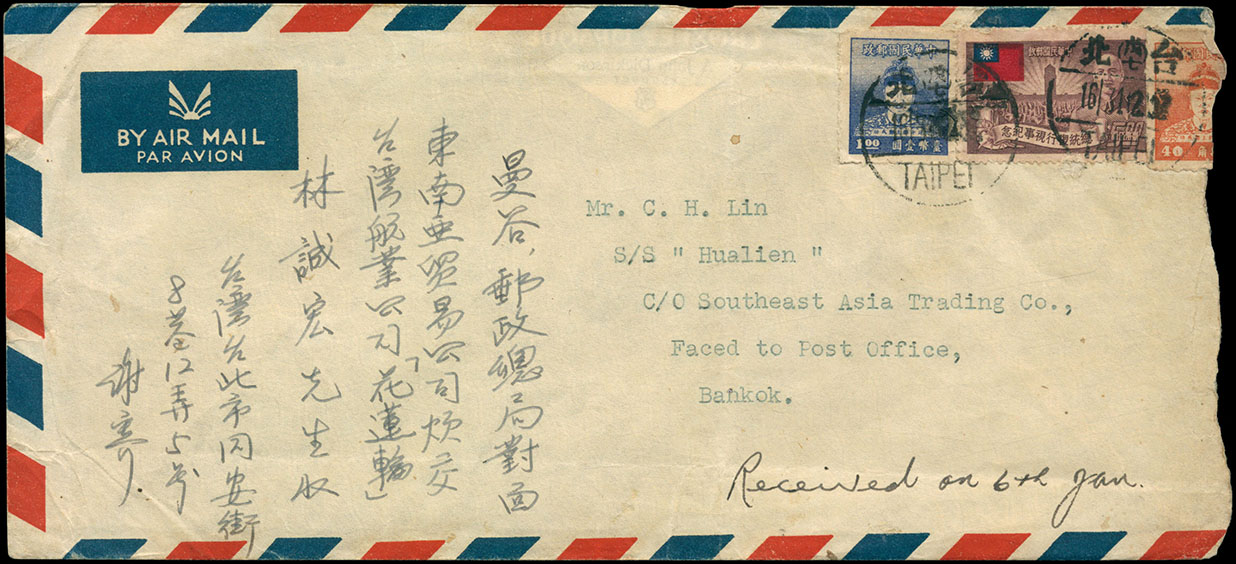 BY AIR MAIL
PAR AVION
中華民國郵政
臺幣壹圓
1.00
中華民國郵政
總統復行視事紀念
40
角
台北
台北
TAIPEI
Mr. C. H. Lin
S/S " Hualien "
C/O Southeast Asia Trading Co.,
Faced to Post Office,
Bankok.
Received on 6th Jan.
曼谷,郵政總局對面
東南亜贸易公司烦交
台湾航業公司「花蓮輪」
林誠宏先生收
台湾台北市同安街
8巷12弄5号
謝寄